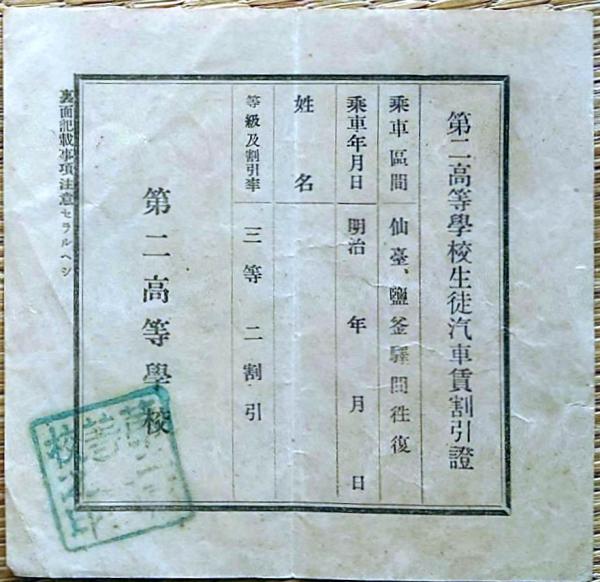 第二高等學校生徒汽車賃割引證
乘車區間 仙臺、鹽釜驛間徃復
乘車年月日 明治 年 月 日
姓 名
等級及割引率 三等 二割引
第二高等學校
裏面記載事項注意セラルヘシ